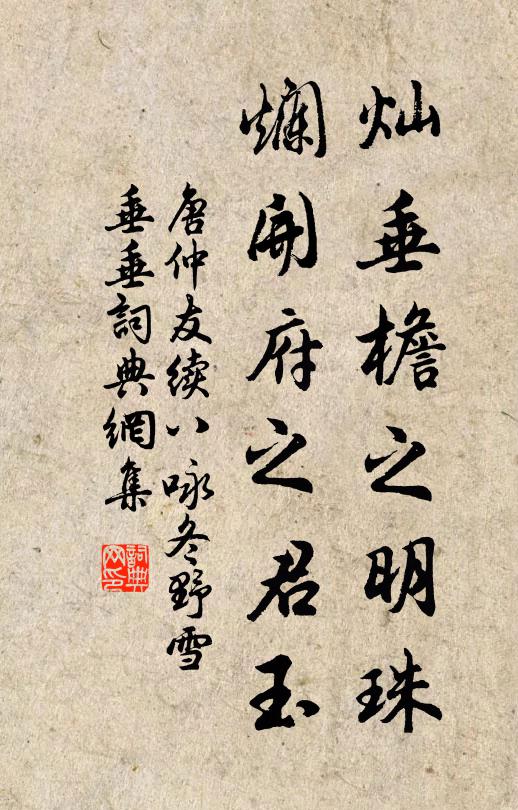 灿垂檐之明珠
爛開府之君玉
唐仲友续八咏冬野雪
垂垂詞典網集
詞典
网印